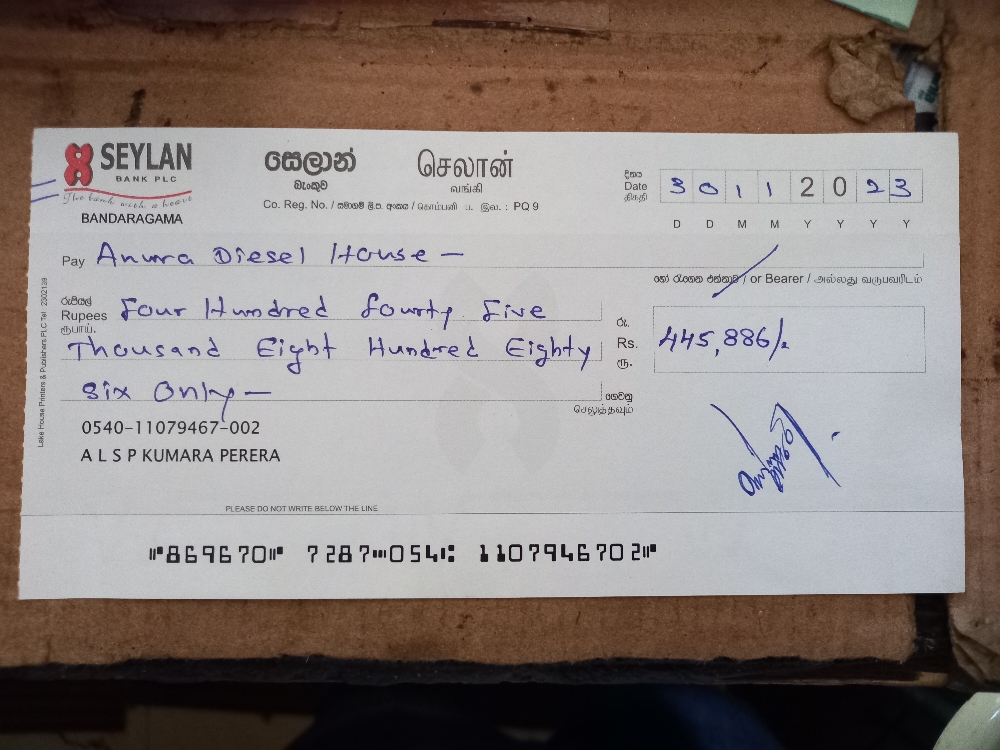 SEYLAN
BANK PLC
The bank with a heart
BANDARAGAMA
සෙලාන්
බැංකුව
செலான்
வங்கி
Co. Reg. No. / සමාගම් ලි.ප. අංකය / கொம்பனி ப. இல. : PQ 9
දිනය
Date
திகதி
3 0 1 1 2 0 2 3
D D M M Y Y Y Y
Pay Anura Diesel House —
හෝ රැගෙන එන්නාට / or Bearer / அல்லது வருபவரிடம்
රුපියල්
Rupees
ரூபாய்.
Four Hundred fourty Five
Thousand Eight Hundred Eighty
Six Only —
රු.
Rs.
ரூ.
445,886/.
ගෙවනු
செலுத்தவும்
0540-11079467-002
A L S P KUMARA PERERA
Lake House Printers & Publishers PLC Tel : 2302139
PLEASE DO NOT WRITE BELOW THE LINE
⑈869670⑈ 7287⑉054⑆ 1107946702⑈